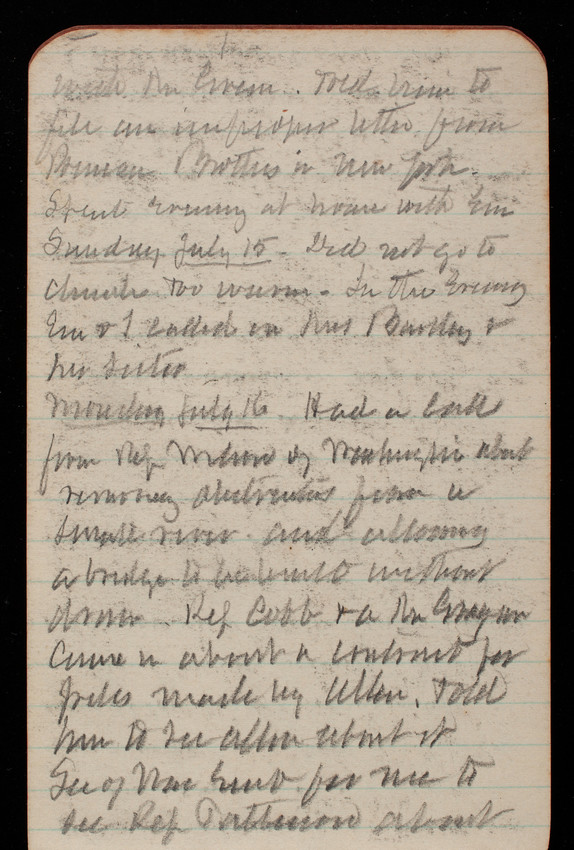 with Mr Green. Told him to
file an improper letter from
Brothers in New York.
Spent evening at home with Em
Sunday July 15 - Did not go to
church. Too warm - In the Evening
Em & I called on Mrs Barclay &
her sister
Monday July 16. Had a call
from Rep Wilson of Washington about
removing obstructions from a
small river and allowing
a bridge to be built without
draw. Rep Cobb & a Mr
Came in about a contract for
piles made by Allen. Told
him to see Allen about it
Sec of War Sent for me to
see Rep Patterson about